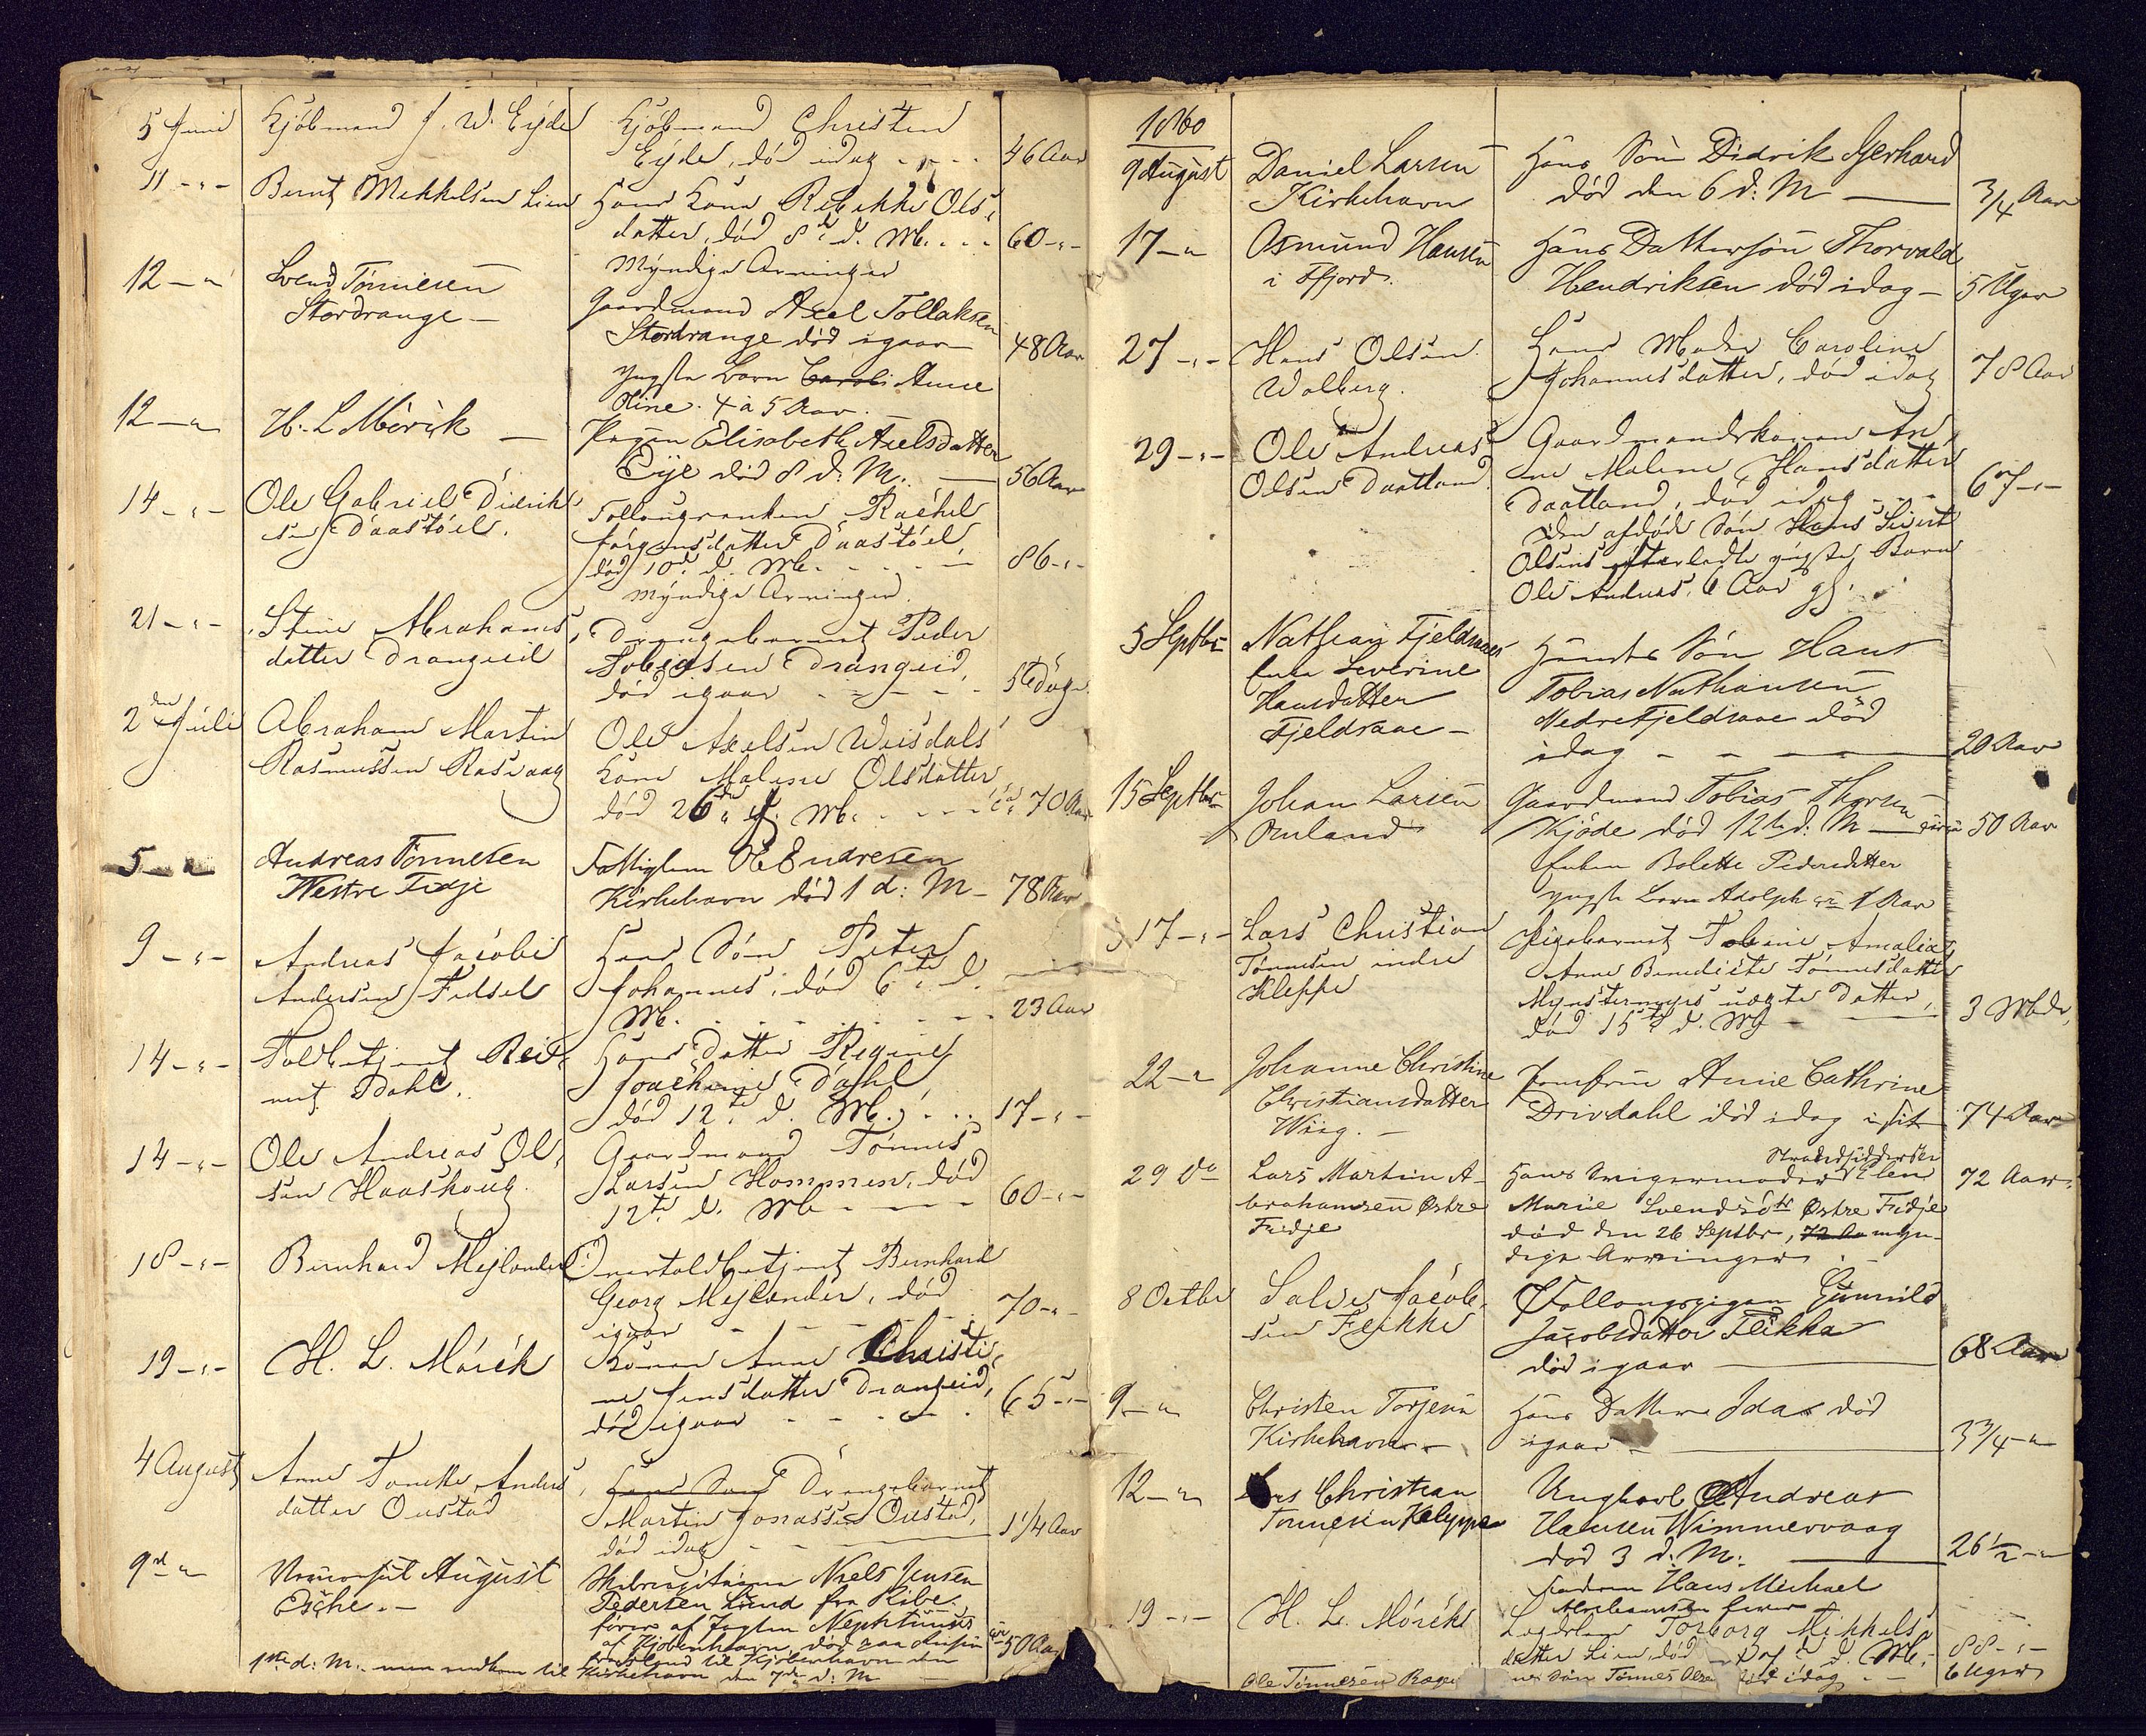 5 Juni Kjøbmand J. W. Eyde Kjøbmand Christen
Eyde, død idag - - - 46 Aar
11 -"- Bernt Mekkelsen Lien Hans Kone Rebekke Ols-
datter, død 8de d. Mt. - - 60 -"-
Myndige Arvinger
12 -"- Svend Tønnesen Gaardmand Axel Tollaksen
Stordrange - Stordrange død igaar 48 Aar
yngste Barn Anne
Oline. 4 a 5 Aar.
12 -"- H. L. Mørch - Pigen Elisabeth Axelsdatter
Eye død 8 d: M. - 56 Aar
14 -"- Ole Gabriel Didrik-
sen Daastøel. Follougsenken Rachel
Jørgensdatter Daastøel,
død 10de d. Mt. - - - 86 -"-
Myndige Arvinger.
21 -"- Stine Abrahams- Drengebarnet Peder
datter Drangeid Tobiassen Drangeid,
død igaar - - - - Dage
2den Juli Abraham Martin Ole Axelsen Weisdals
Rasmussen Rasvaag Kone Malene Olsdatter
død 26de f. Mt. - - - ca 70 Aar
5 -"- Andreas Tønnesen Fattiglem Ole Endresen
Vestre Fidje Kirkehavn død 1 d: M - 78 Aar
9 -"- Andreas Jacobi Hans Søn Peter
Andersen Fidsel Johannes, død 6te d.
Mt. - - - - - - 23 Aar
14 -"- Toldbetjent Rei- Hans Datter Regine
nert Dahl. Joachime Dahl,
død 12te d. Mt. - - 17 -"-
14 -"- Ole Andreas Ol- Gaardmand Tønnes
sen Haashoug. Larsen Hommen, død
12te d. Mt - - - 60 -"-
18 -"- Bernhard Mejlender Overtoldbetjent Bernhard
Georg Mejlænder, død
igaar - - - - - 70 -"-
19 -"- H. L. Mørch Konen Anne Christi-
ne Jensdatter Drangeid,
død igaar - - - - 65 -"-
4 August Anne Tomette Anders- Hans Søn Drengebarnet
datter Oustad Martin Jonassen Oustad,
død idag - - - 1 1/4 Aar
9de -"- August
Esche. - Niels Jensen
Pedersen Lund fra Ribe,
fører af Jagten Nephtunus
af Kjøbenhavn, død paa Reisen
til Kjøbenhavn den
1ste d: M. - men indkom til Kirkehavn den 7de d: M 50 Aar
1860
9 August Daniel Larsen Hans Søn Didrik Gerhard
Kirkehavn død den 6 d: M - 3/4 Aar
17 -"- Osmund Hansen Hans Dattersøn Thorvald
i Fjord. Hendriksen død idag - 5 Uger
27 -"- Hans Olsen Hans Moder Caroline
Wolberg. Johannesdatter, død idag 78 Aar
29 -"- Ole Andreas Gaardmandskonen An-
Olsen Daatland. ne Malene Hansdatter
Daatland, død idag - - - 67 -"-
den afdøde Søn Hans Sivert
Olsens efterladte yngste Barn
Ole Andreas, 6 Aar gl.
5 Septbr Nathan Fjeldsaaes Hendes Søn Hans
Enke Severine Tobias Nathansen
Hansdatter Nedre Fjeldsaae død
Fjeldsaae - idag - - - 20 Aar
15 Septbr Johan Larsen Gaardmand Tobias Thorsen
Omland Kjøde død 12te d: M - circa 50 Aar
Enken Bolette Pedersdatter
yngste Barn Adolph er 1 Aar
17 -"- Lars Christian Pigebarnet Tobine Amalia,
Tønnesen indre Anne Benedicte Tønnesdatter
Kleppe Mynstermyrs uægte Datter,
død 15de d. Mt - 3 Mdr.
22 -"- Johanne Christine Jomfrue Anne Cathrine
Christiansdatter Drivdahl død idag i sit 74 Aar
Wiig. -
29 do Lars Martin A- Hans Svigermoder Strandsidderske Elen 72 Aar.
brahamsen Østre Marie Svendsdtr Østre Fidje
Fidje død den 26 Septbr, 72 Aa myn-
dige Arvinger
8 Octbr Salve Jacob- Follougspigen Gunnild
sen Flikke Jacobsdatter Flikka
død igaar - 68 Aar
9 -"- Christen Torjesen Hans Datter Ida død
Kirkehavn - igaar - 3 3/4 -"-
12 -"- Lars Christian Ungkarl Andreas
Tønnesen Kleppe Hansen Wimmervaag
død 3 d: M. - 26 1/2 -"-
Faderen Hans Michael
19 -"- H. L. Mørch Torborg Mikkels-
datter Lien, død d. Mt. 88 -"-
Ole Tønnesen Søn Tønnes død idag - 6 Uger